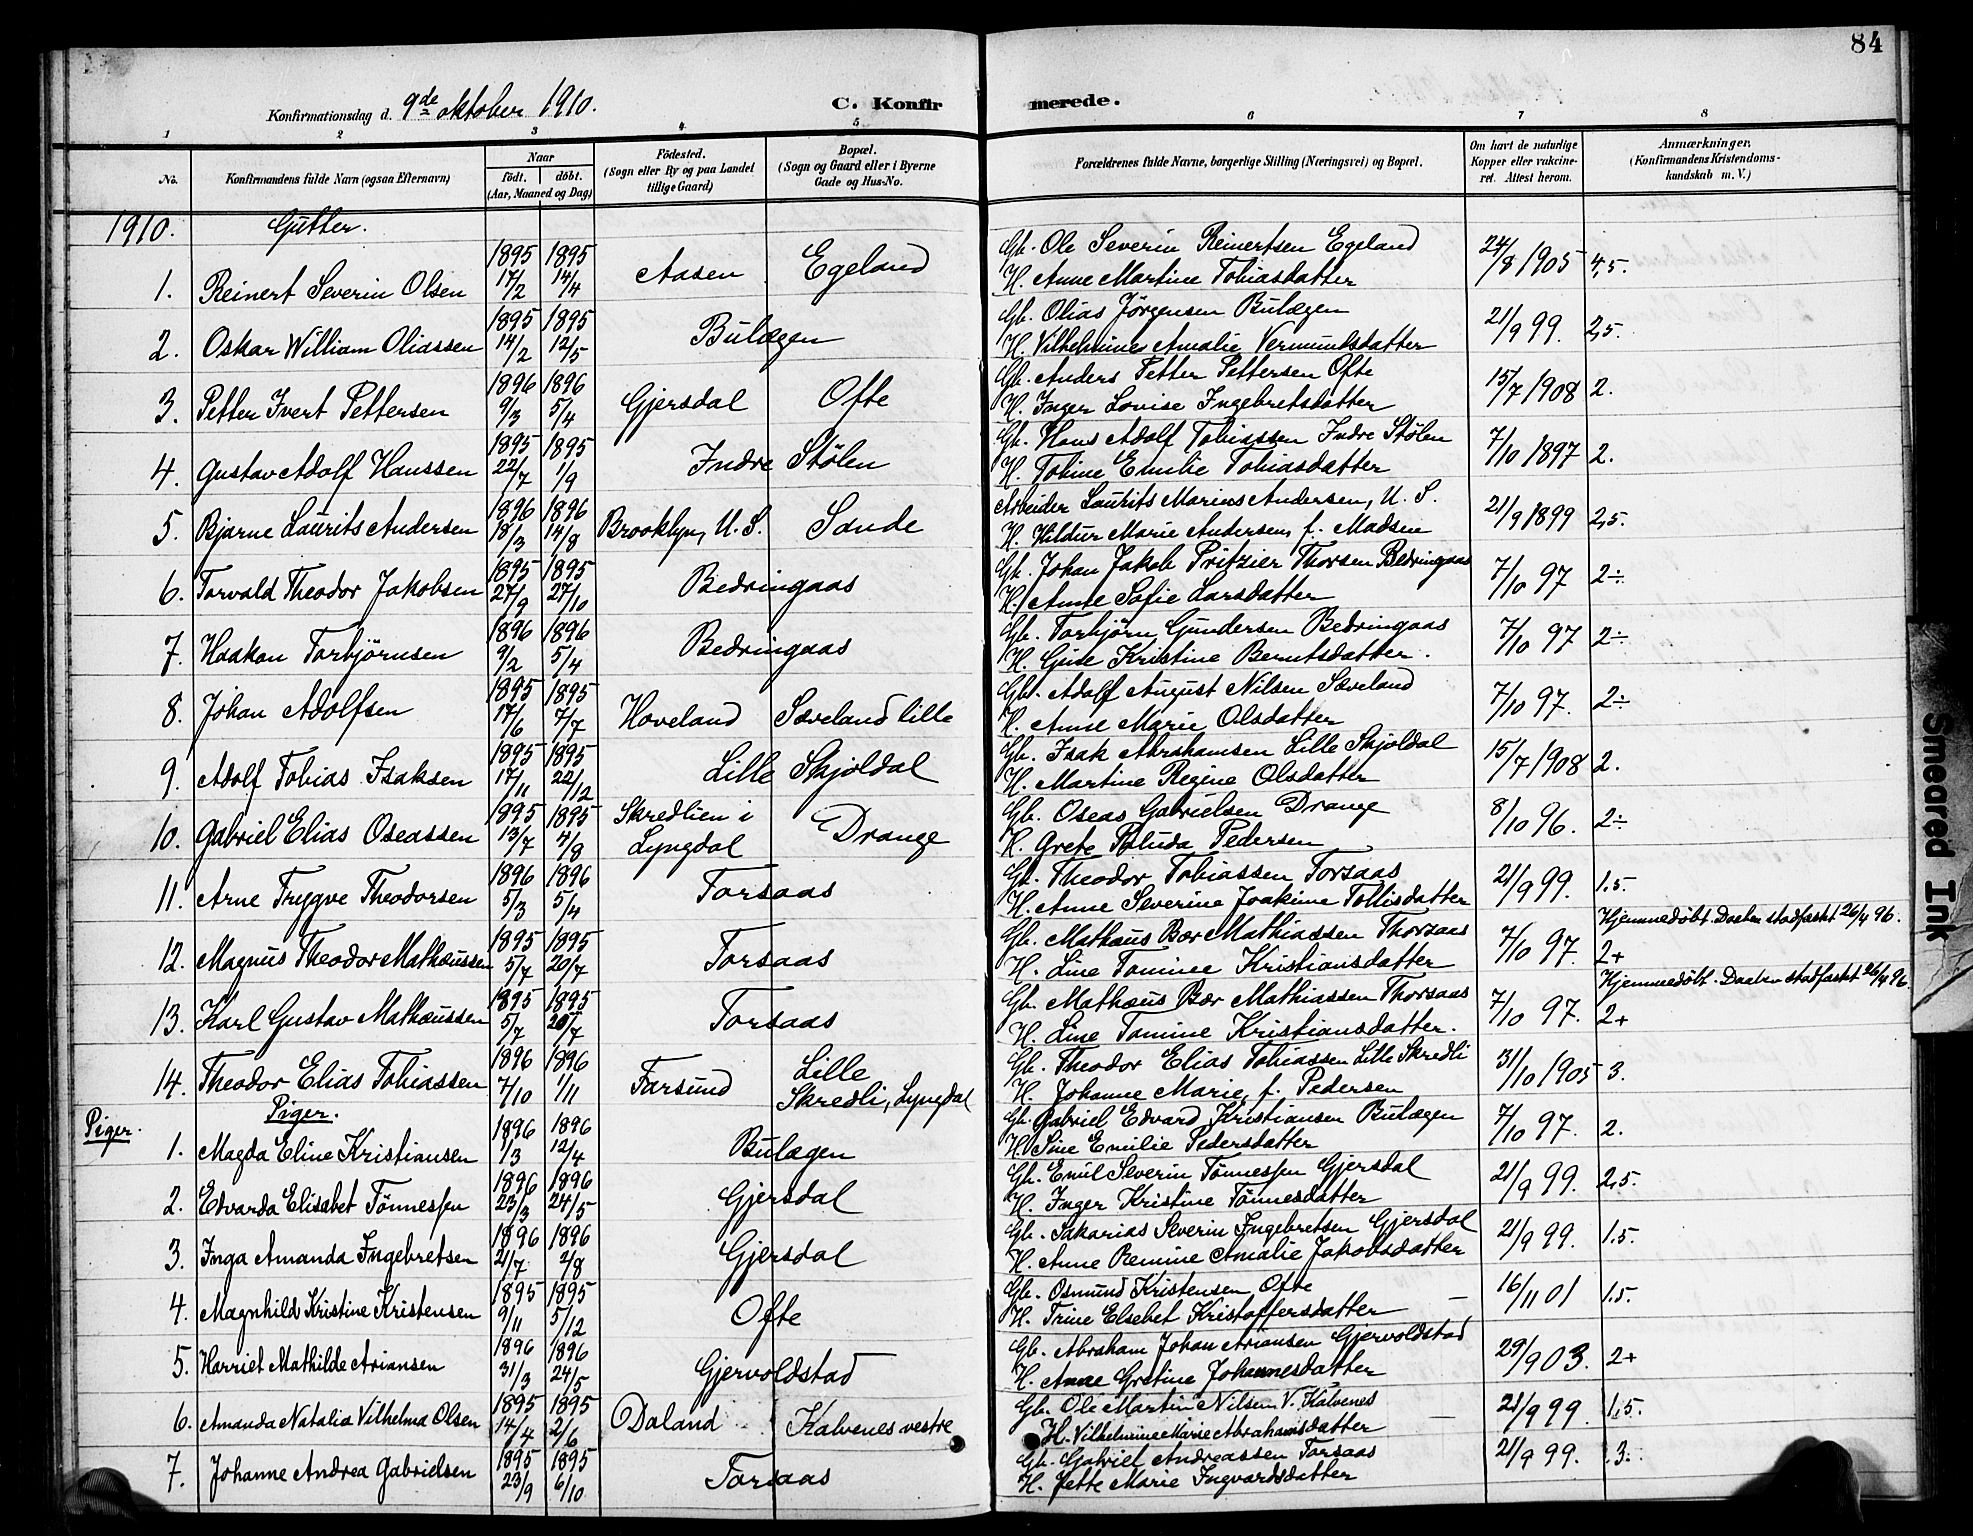 84
Konfirmationsdag d. 9de oktober 1910. C. Konfirmerede.
1 2 3 4 5 6 7 8
No. Konfirmandens fulde Navn (ogsaa Efternavn) Naar født. døbt. (Aar, Maaned og Dag) Fødested. (Sogn eller By og paa Landet tillige Gaard) Bopæl. (Sogn og Gaard eller i Byerne Gade og Hus-No. Forældrenes fulde Navne, borgerlige Stilling (Næringsvei) og Bopæl. Om havt de naturlige Kopper eller vakcineret. Attest herom. Anmærkninger. (Konfirmandens Kristendomskundskab m. V.)
1910. Gutter.
1. Reinert Severin Olsen 1895 17/2 1895 14/4 Aasen Egeland Gb. Ole Severin Reinertsen Egeland 24/8 1905 4,5.
H. Anne Martine Tobiasdatter
2. Oskar William Oliassen 1895 14/2 1895 12/5 Bulægen Gb. Olias Jørgensen Bulægen 21/9 99. 2,5.
H. Vilhelmine Amalie Vermundsdatter
3. Petter Ivert Pettersen 1896 9/3 1896 5/4 Gjersdal Ofte Gb. Anders Petter Pettersen Ofte 15/7 1908 2.
H. Inger Lovise Ingebretsdatter
4. Gustav Adolf Hanssen 1895 22/7 1895 1/9 Indre Stølen Gb. Hans Adolf Tobiassen Indre Stølen 7/10 1897 2.
H. Tobine Emilie Tobiasdatter
5. Bjarne Laurits Andersen 1896 18/3 1896 14/8 Brooklyn, U.S. Sande Arbeider Laurits Marius Andersen, U.S. 21/9 1899 2,5.
H. Hildur Marie Andersen, f. Madsen
6. Torvald Theodor Jakobsen 1895 27/9 1895 27/10 Bedringaas Gb. Johan Jakob Pritzier Thorsen Bedringaas 7/10 97 2÷
H. Anne Sofie Larsdatter
7. Haakon Torbjørnsen 1896 9/2 1896 5/4 Bedringaas Gb. Torbjørn Gundersen Bedringaas 7/10 97 2÷
H. Gine Kristine Berntsdatter.
8. Johan Adolfsen 1895 17/6 1895 7/7 Hoveland Sæveland lille Gb. Adolf August Nilsen Sæveland 7/10 97. 2÷
H. Anne Marie Olsdatter
9. Adolf Tobias Isaksen 1895 17/11 1895 22/12 Lille Skjoldal Gb. Isak Abrahamsen Lille Skjoldal 15/7 1908 2.
H. Martine Regine Olsdatter
10. Gabriel Elias Oseassen 1895 13/7 1895 4/8 Skredlien i Lyngdal Drange Gb. Oseas Gabrielsen Drange 8/10 96. 2÷
H. Grete Pedersen
11. Arne Trygve Theodorsen 1896 5/3 1896 5/4 Torsaas Gb. Theodor Tobiassen Torsaas 21/9 99. 1.5.
H. Anne Severine Joakime Tollisdatter
12. Magnus Theodor Mathæussen 1895 5/7 1895 20/7 Torsaas Gb. Mathæus Bær Mathiassen Thorsaas 7/10 97. Hjemmedøbt. Daaben stadfæstet 26/4 96. 2+
H. Line Tomine Kristiansdatter
13. Karl Gustav Mathæussen 1895 5/7 1895 20/7 Torsaas Gb. Mathæus Bær Mathiassen Thorsaas 7/10 97. Hjemmedøbt. Daaben stadfæstet 26/4 96. 2+
H. Line Tomine Kristiansdatter.
14. Theodor Elias Tobiassen 1896 7/10 1896 1/11 Farsund Lille Skredli, Lyngdal Gb. Theodor Elias Tobiassen Lille Skredli 31/10 1905 3.
H. Johanne Marie, f. Pedersen
Piger. Piger.
1. Magda Eline Kristiansen 1896 1/3 1896 12/4 Bulægen Gb. Gabriel Edvard Kristiansen Bulægen 7/10 97. 2.
H. Sine Emilie Pedersdatter
2. Edvarda Elisabet Tønnessen 1896 23/3 1896 24/5 Gjersdal Gb. Emil Severin Tønnessen Gjersdal 21/9 99. 2,5.
H. Inger Kristine Tønnesdatter
3. Inga Amanda Ingebretsen 1896 21/7 1896 2/8 Gjersdal Gb. Sakarias Severin Ingebretsen Gjersdal 21/9 99. 1.5.
H. Anne Remine Amalie Jakobsdatter
4. Magnhild Kristine Kristensen 1895 9/11 1895 5/12 Ofte Gb. Osmund Kristensen Ofte 16/11 01 1.5.
H. Trine Elsebet Kristoffersdatter
5. Harriet Mathilde Ariansen 1896 31/3 1896 24/5 Gjervoldstad Gb. Abraham Johan Ariansen Gjervoldstad 29/9 03. 2+
H. Anne Gretine Johannesdatter
6. Amanda Natalia Vilhelma Olsen 1895 14/4 1895 2/6 Daland Kalvenes vestre Gb. Ole Martin Nilsen V. Kalvenes 21/9 99. 1.5.
H. Vilhelmine Marie Abrahamsdatter
7. Johanne Andrea Gabrielsen 1895 23/9 1895 6/10 Torsaas Gb. Gabriel Andreassen Torsaas 21/9 99. 3.
H. Jette Marie Ingvardsdatter
Smeared Ink